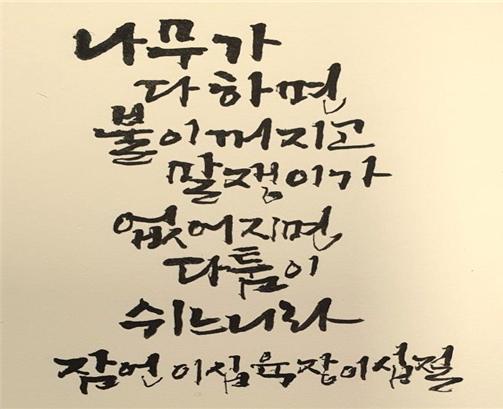 나무가
다하면
불이꺼지고
말쟁이가
없어지면
다툼이
쉬느니라
잠언이십육장이십절